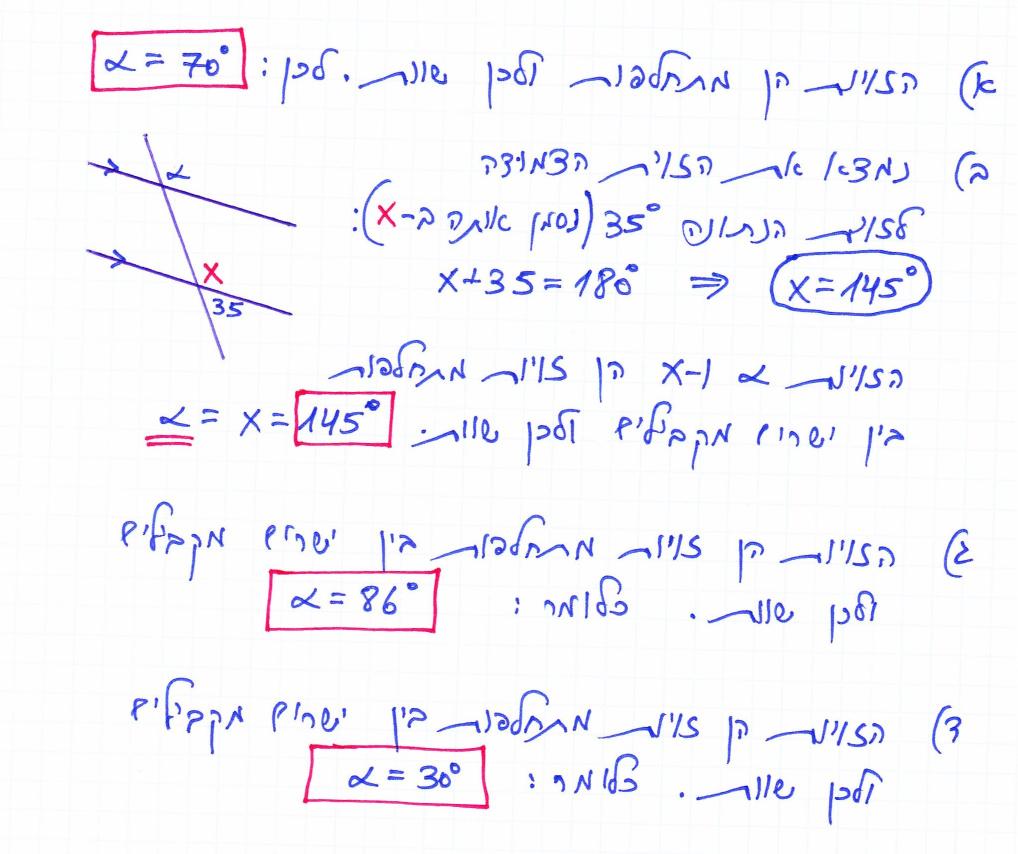 א) הזוית הן מתחלפות ולכן שוות. לכן: α = 70°
ב) נמצא את הזוית הצמודה
לזוית הנתונה 35° (נסמן אותה ב-x):
x+35=180° ⇒ x=145°
α
x
35
הזוית α ו-x הן זויות מתחלפות
בין ישרים מקבילים ולכן שוות. α = x = 145°
ג) הזויות הן זויות מתחלפות בין ישרים מקבילים
ולכן שוות. כלומר: α = 86°
ד) הזוית הן זוית מתחלפות בין ישרים מקבילים
ולכן שוות. כלומר: α = 30°